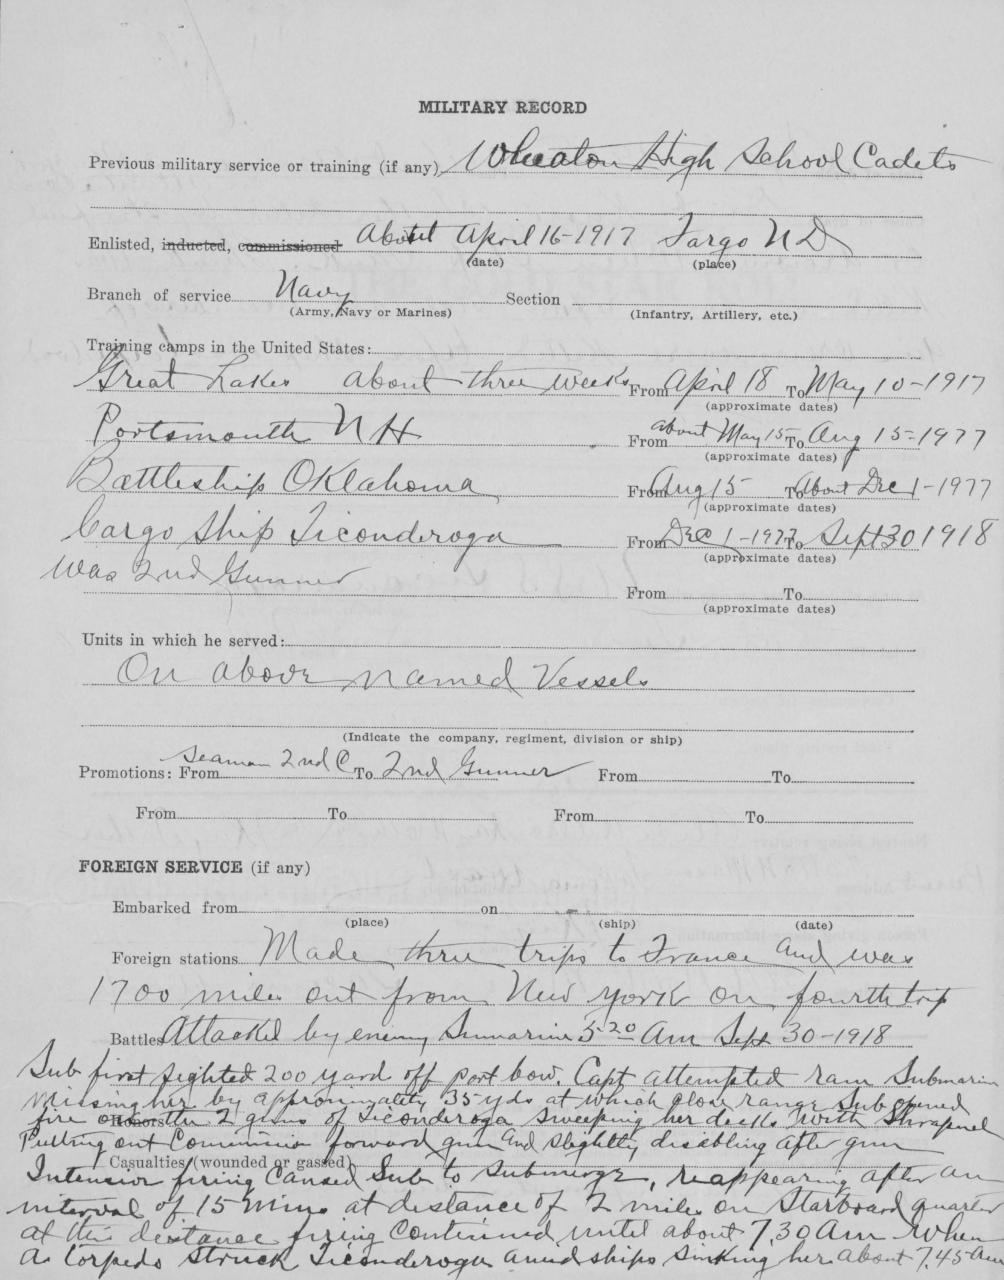 MILITARY RECORD
Previous military service or training (if any) Wheaton High School Cadets
Enlisted, inducted, commissioned About April 16-1917 Fargo N D
(date) (place)
Branch of service Navy Section
(Army, Navy or Marines) (Infantry, Artillery, etc.)
Training camps in the United States:
Great Lakes about three weeks From April 18 To May 10-1917
(approximate dates)
Portsmouth N H From about May 15 To Aug 15-1977
(approximate dates)
Battleship Oklahoma From Aug 15 To About Dec 1-1977
(approximate dates)
Cargo Ship Ticonderoga From Dec 1-1977 To Sept 30 1918
(approximate dates)
Was 2nd Gunner From To
(approximate dates)
Units in which he served:
On above named Vessels
(Indicate the company, regiment, division or ship)
Promotions: From Seaman 2nd C To 2nd Gunner From To
From To From To
FOREIGN SERVICE (if any)
Embarked from on
(place) (ship) (date)
Foreign stations Made three trips to France and was
1700 miles out from New York on fourth trip
Battles Attacked by enemy Sumarine 5-20 Am Sept 30-1918
Sub first sighted 200 yard off port bow. Capt attempted ram Submarin
Missing her by approximately 35 yds at which close range Sub opened
fire on the 2 guns of Ticonderoga sweeping her decks with Shrapnel
Honors
Putting out Commission forward gun and slightly disabling after gun
Casualties (wounded or gassed)
Intensive firing caused Sub to submerge, reappearing after an
interval of 15 Mins at distance of 2 miles on Starboard quarter
at this distance firing continued until about 7.30 Am When
a torpedo struck Ticonderoga amidships sinking her about 7.45 Am